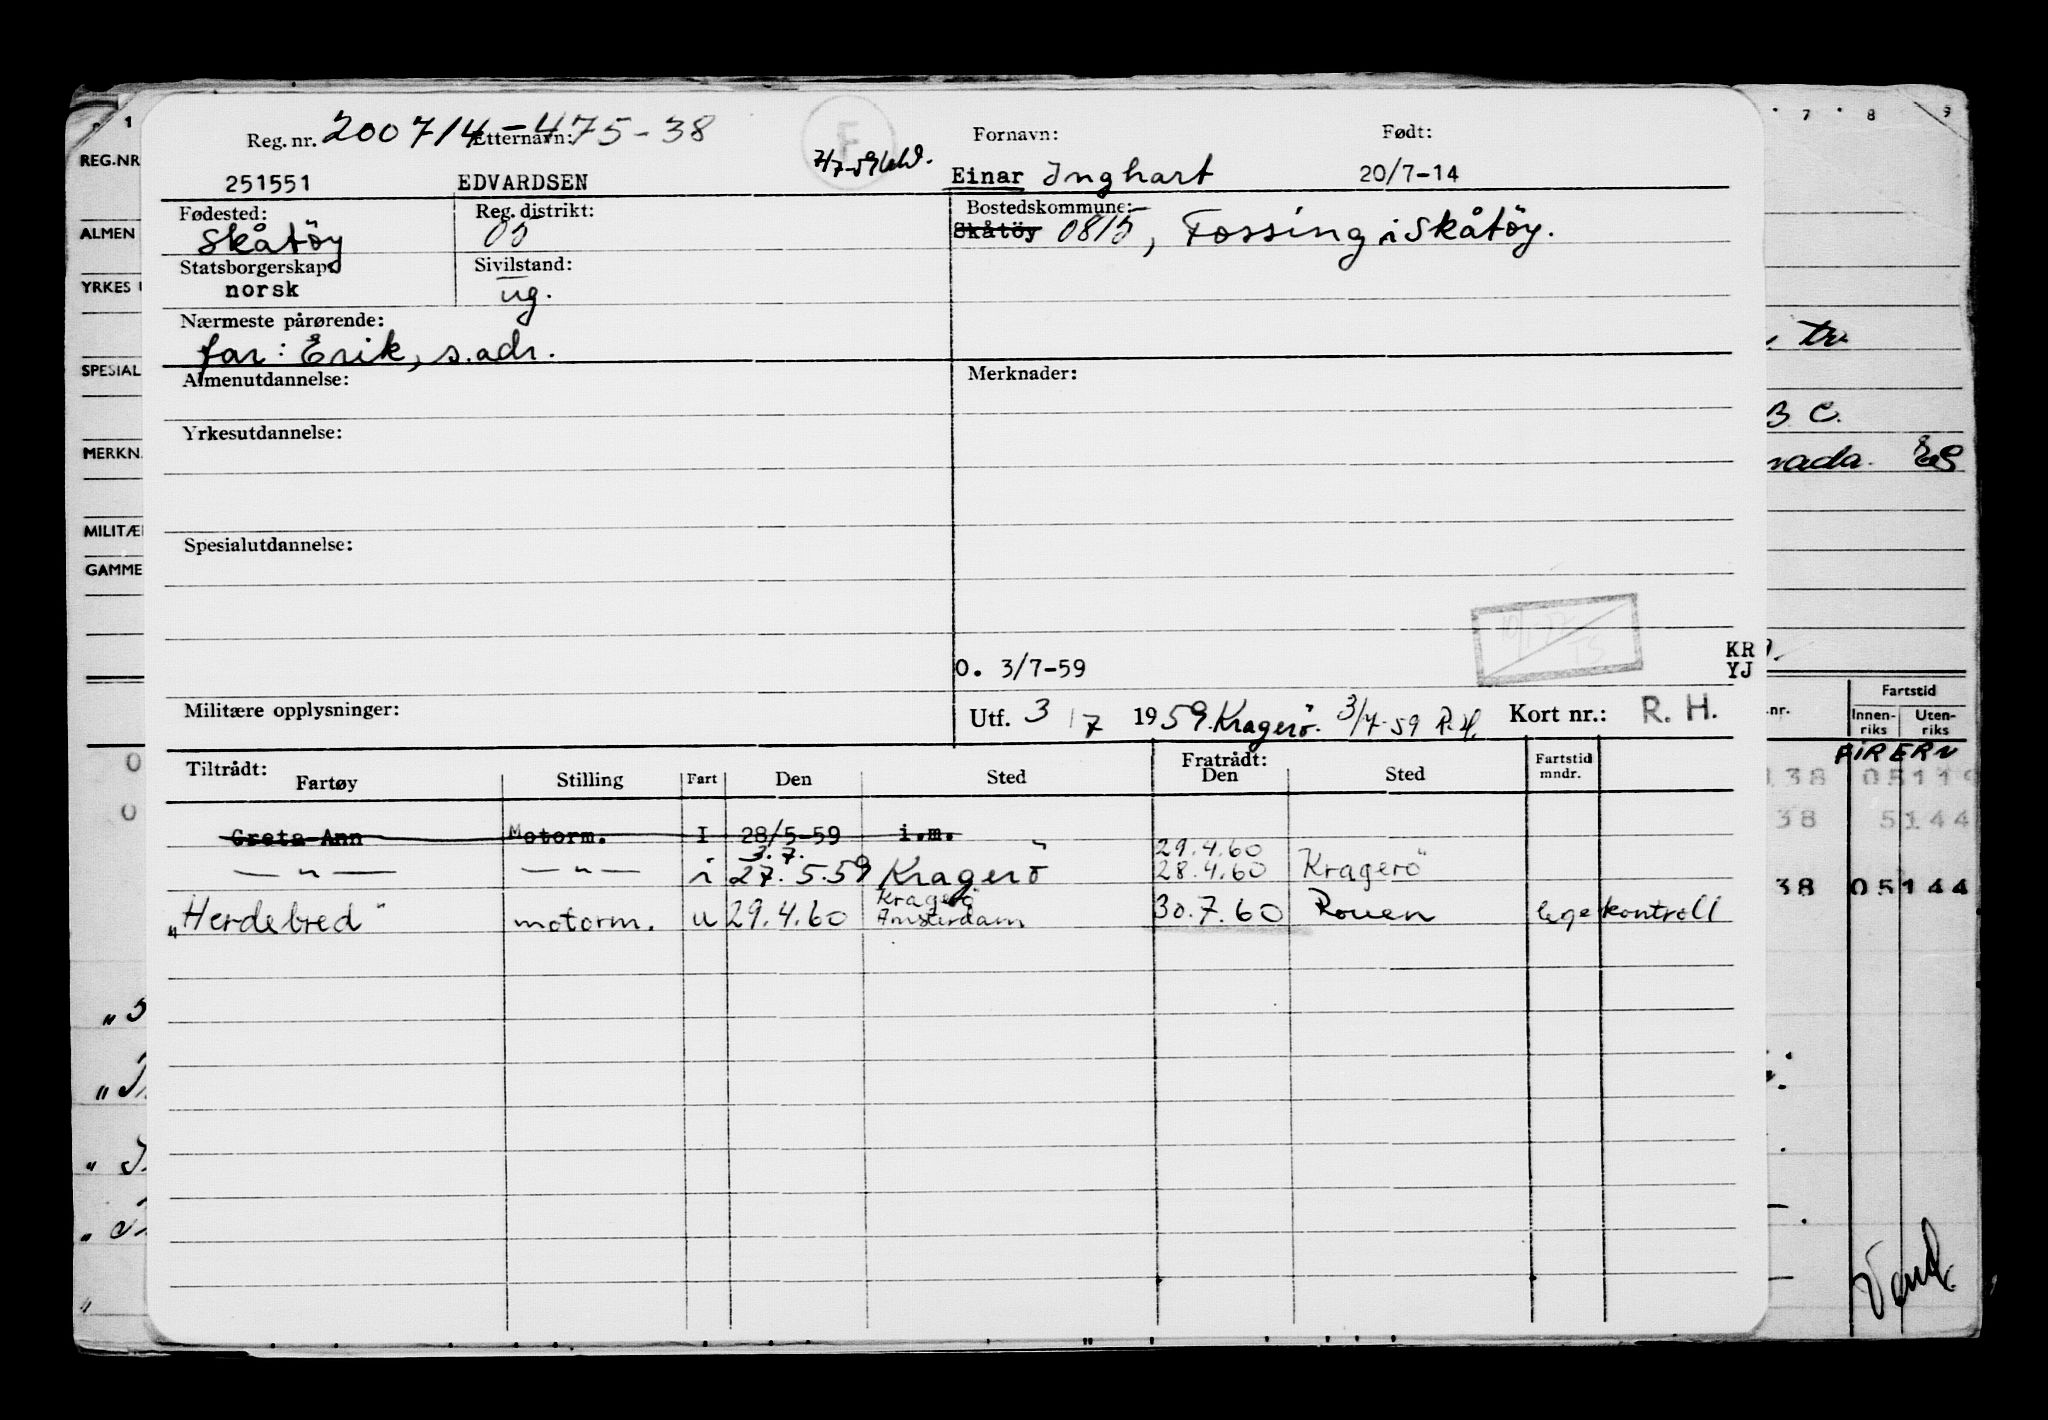 Reg. nr. 200714-475-38 Etternavn: F Fornavn: Født:
251551 EDVARDSEN Einar Inghart 20/7-14
Fødested: Reg. distrikt: Bostedskommune:
Skåtöy 05 Skåtöy 0815, Fossing i Skåtöy.
Statsborgerskap: Sivilstand:
norsk ug.
Nærmeste pårørende:
far: Erik, s. adr.
Almenutdannelse: Merknader:
Yrkesutdannelse:
Spesialutdannelse:
O. 3/7-59
KR
YJ
Militære opplysninger: Utf. 3/7 1959 Kragerö. 3/7-59 R.H. Kort nr.: R. H.
Tiltrådt: Fratrådt: Fartstid
Fartøy Stilling Fart Den Sted Den Sted mndr.
Greta-Ann Motorm. I 28/5-59 i.m.
3.7. 29.4.60
— " — — " — i 27.5.59 Kragerö 28.4.60 Kragerö
Kragerö
„Herdebred" motorm. u 29.4.60 Amsterdam 30.7.60 Rouen legekontroll
1
REG.NR
ALMEN
YRKES
SPESIAL
MERKN.
MILITÆ
GAMME
0
0
7 8 9
tr.
B C.
nada. ES
Fartstid
.nr. Innen-riks Uten-riks
38 0511
38 5144
38 05144
Vend